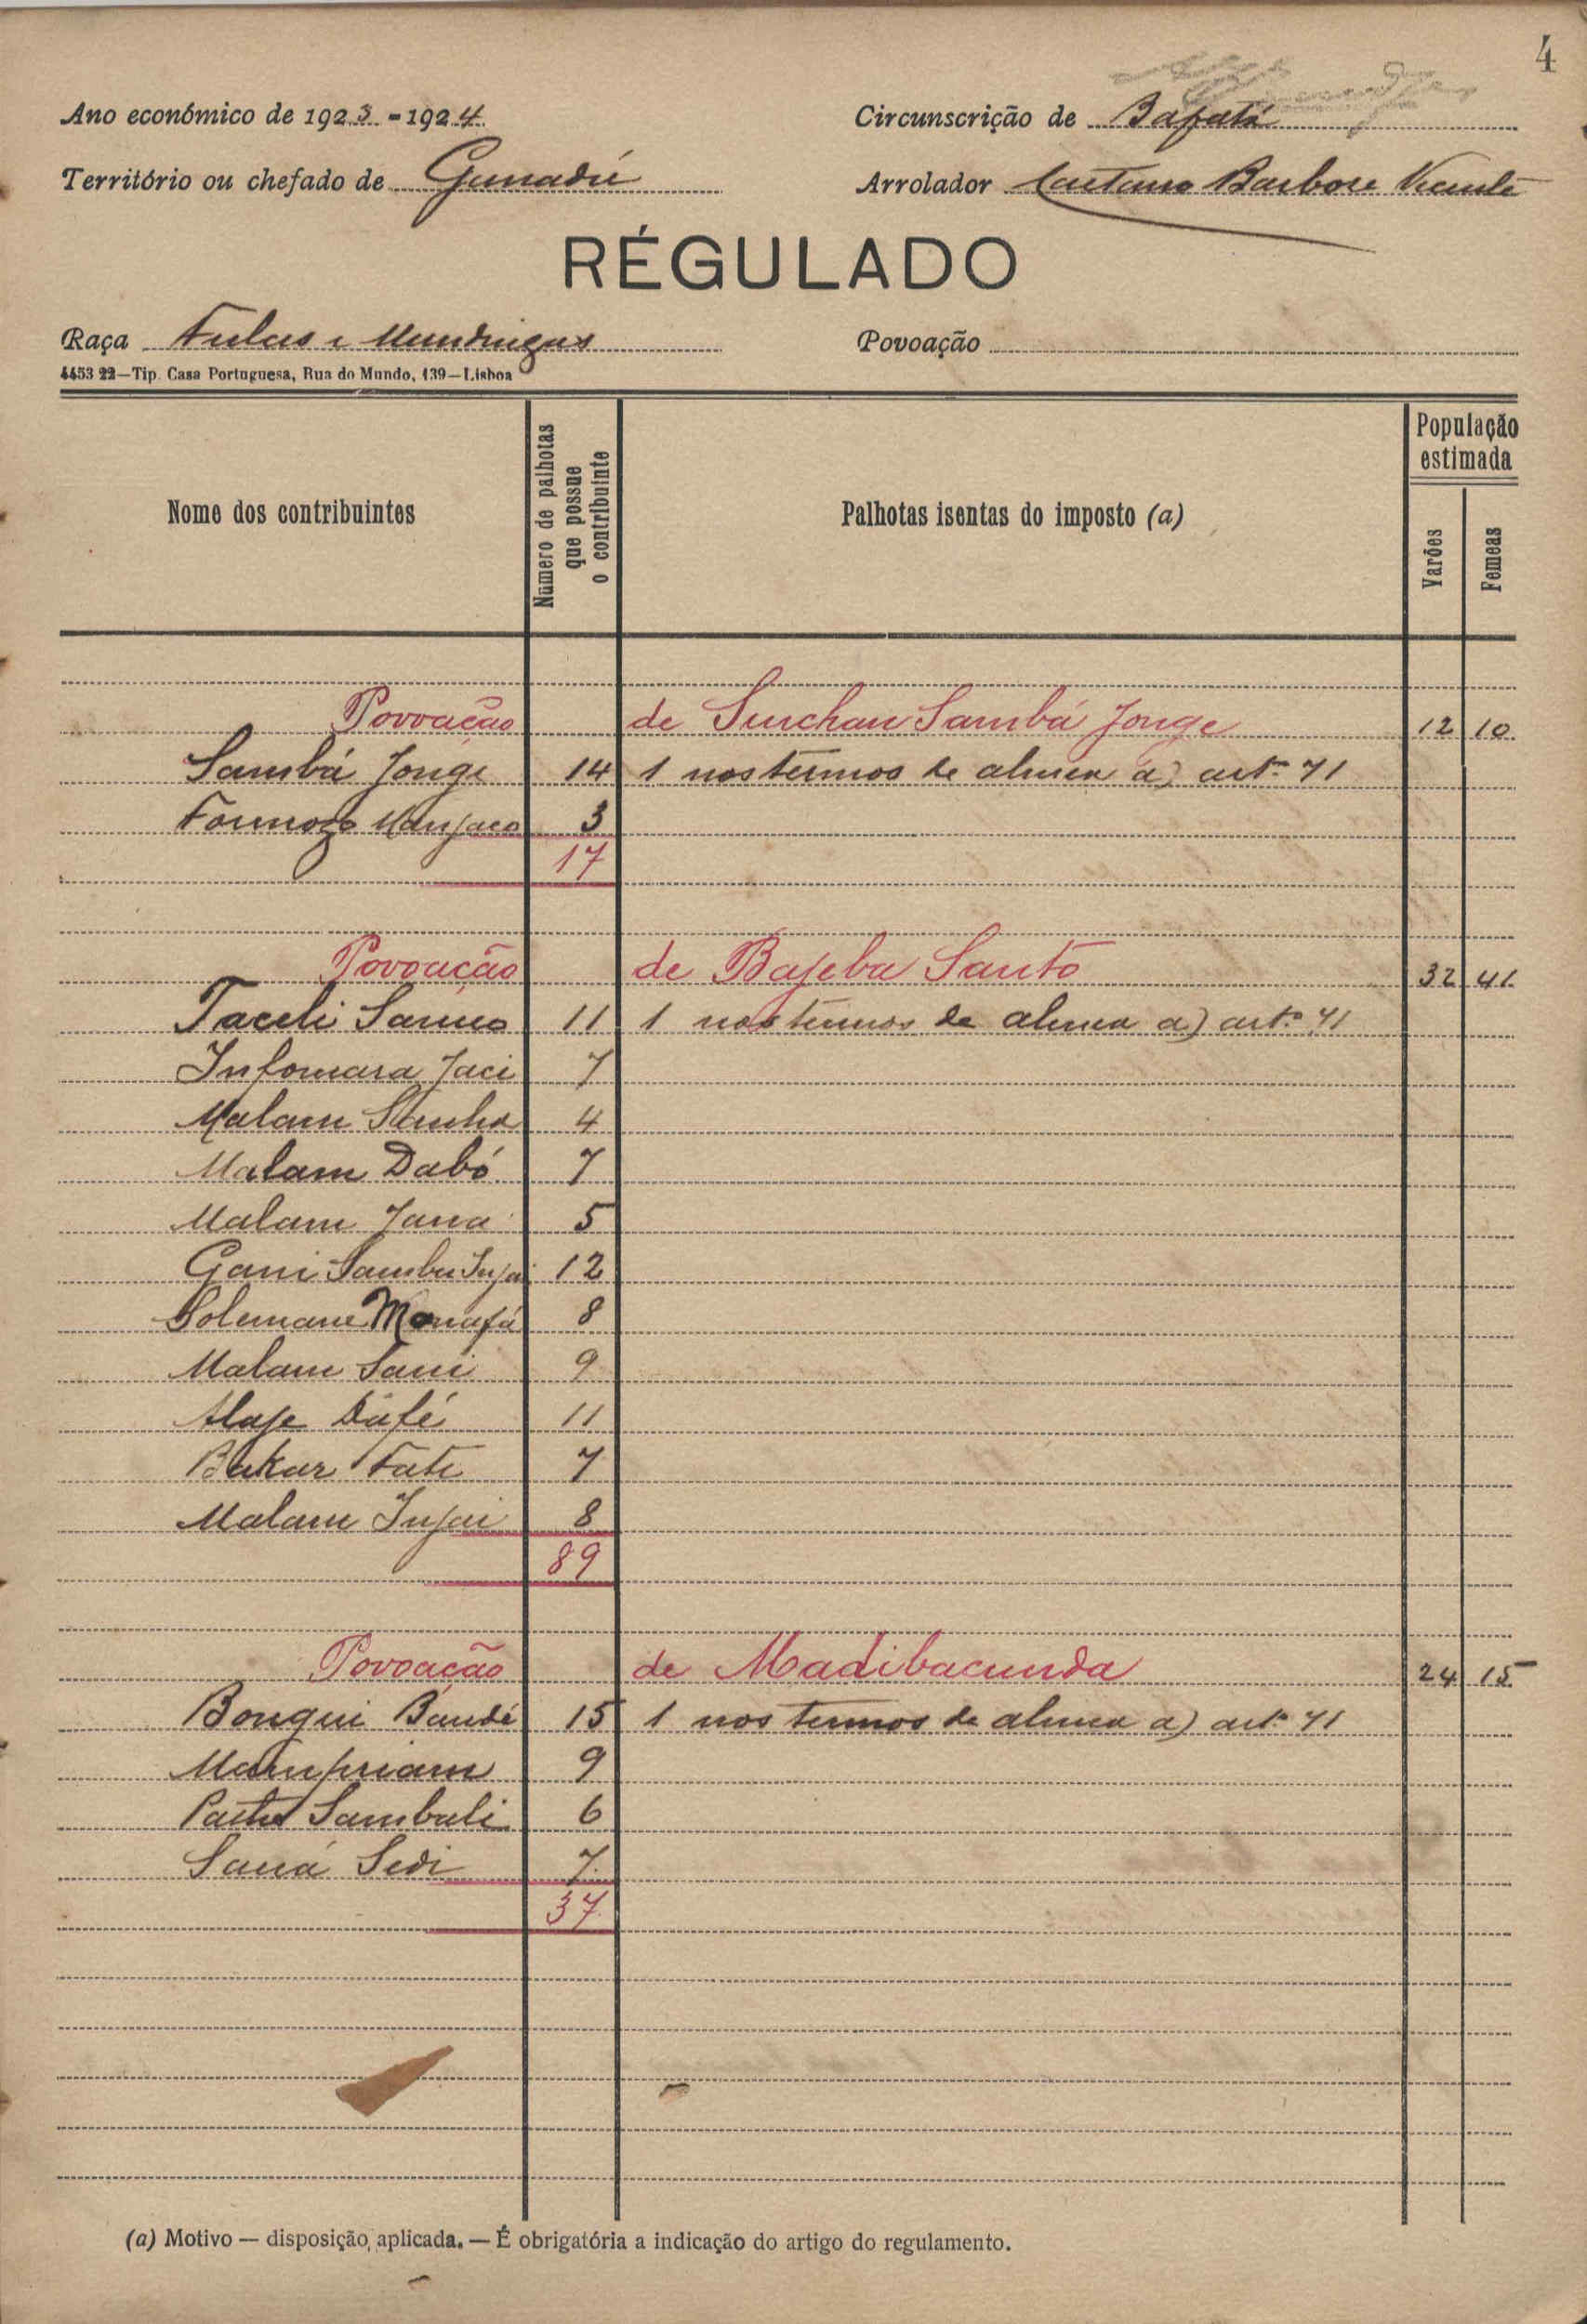 4
Ano económico de 1923-1924 Circunscrição de Bafatá
Território ou chefado de Ganadú Arrolador Caetano Barbosa Vicente
RÉGULADO
Raça Fulas e Mandingas Povoação
4453 22—Tip. Casa Portuguesa, Rua do Mundo, 139—Lisboa
Nome dos contribuintes Número de palhotas que possue o contribuinte Palhotas isentas do imposto (a) População estimada Varões Femeas
Povoação de Sinchau Sambá Jonge 12 10
Sambá Jonge 14 1 nos termos de alinea a) artº 71
Formozo Manjaco 3
17
Povoação de Bajeba Santo 32 41
Taceli Sanno 11 1 nos termos de alinea a) artº 71
Infomara Jaci 7
Malam 4
Malam Dabó 7
Malam Jana 5
Gani Sambu Injai 12
Solemane Manafá 8
Malam Sani 9
Alaje Dafé 11
Bakar Fati 7
Malam Injai 8
89
Povoação de Madibacunda 24 15
Bonqui Bandé 15 1 nos termos de alinea a) artº 71
9
Sambali 6
Saná Sedi 7
37
(a) Motivo — disposição aplicada. — É obrigatória a indicação do artigo do regulamento.